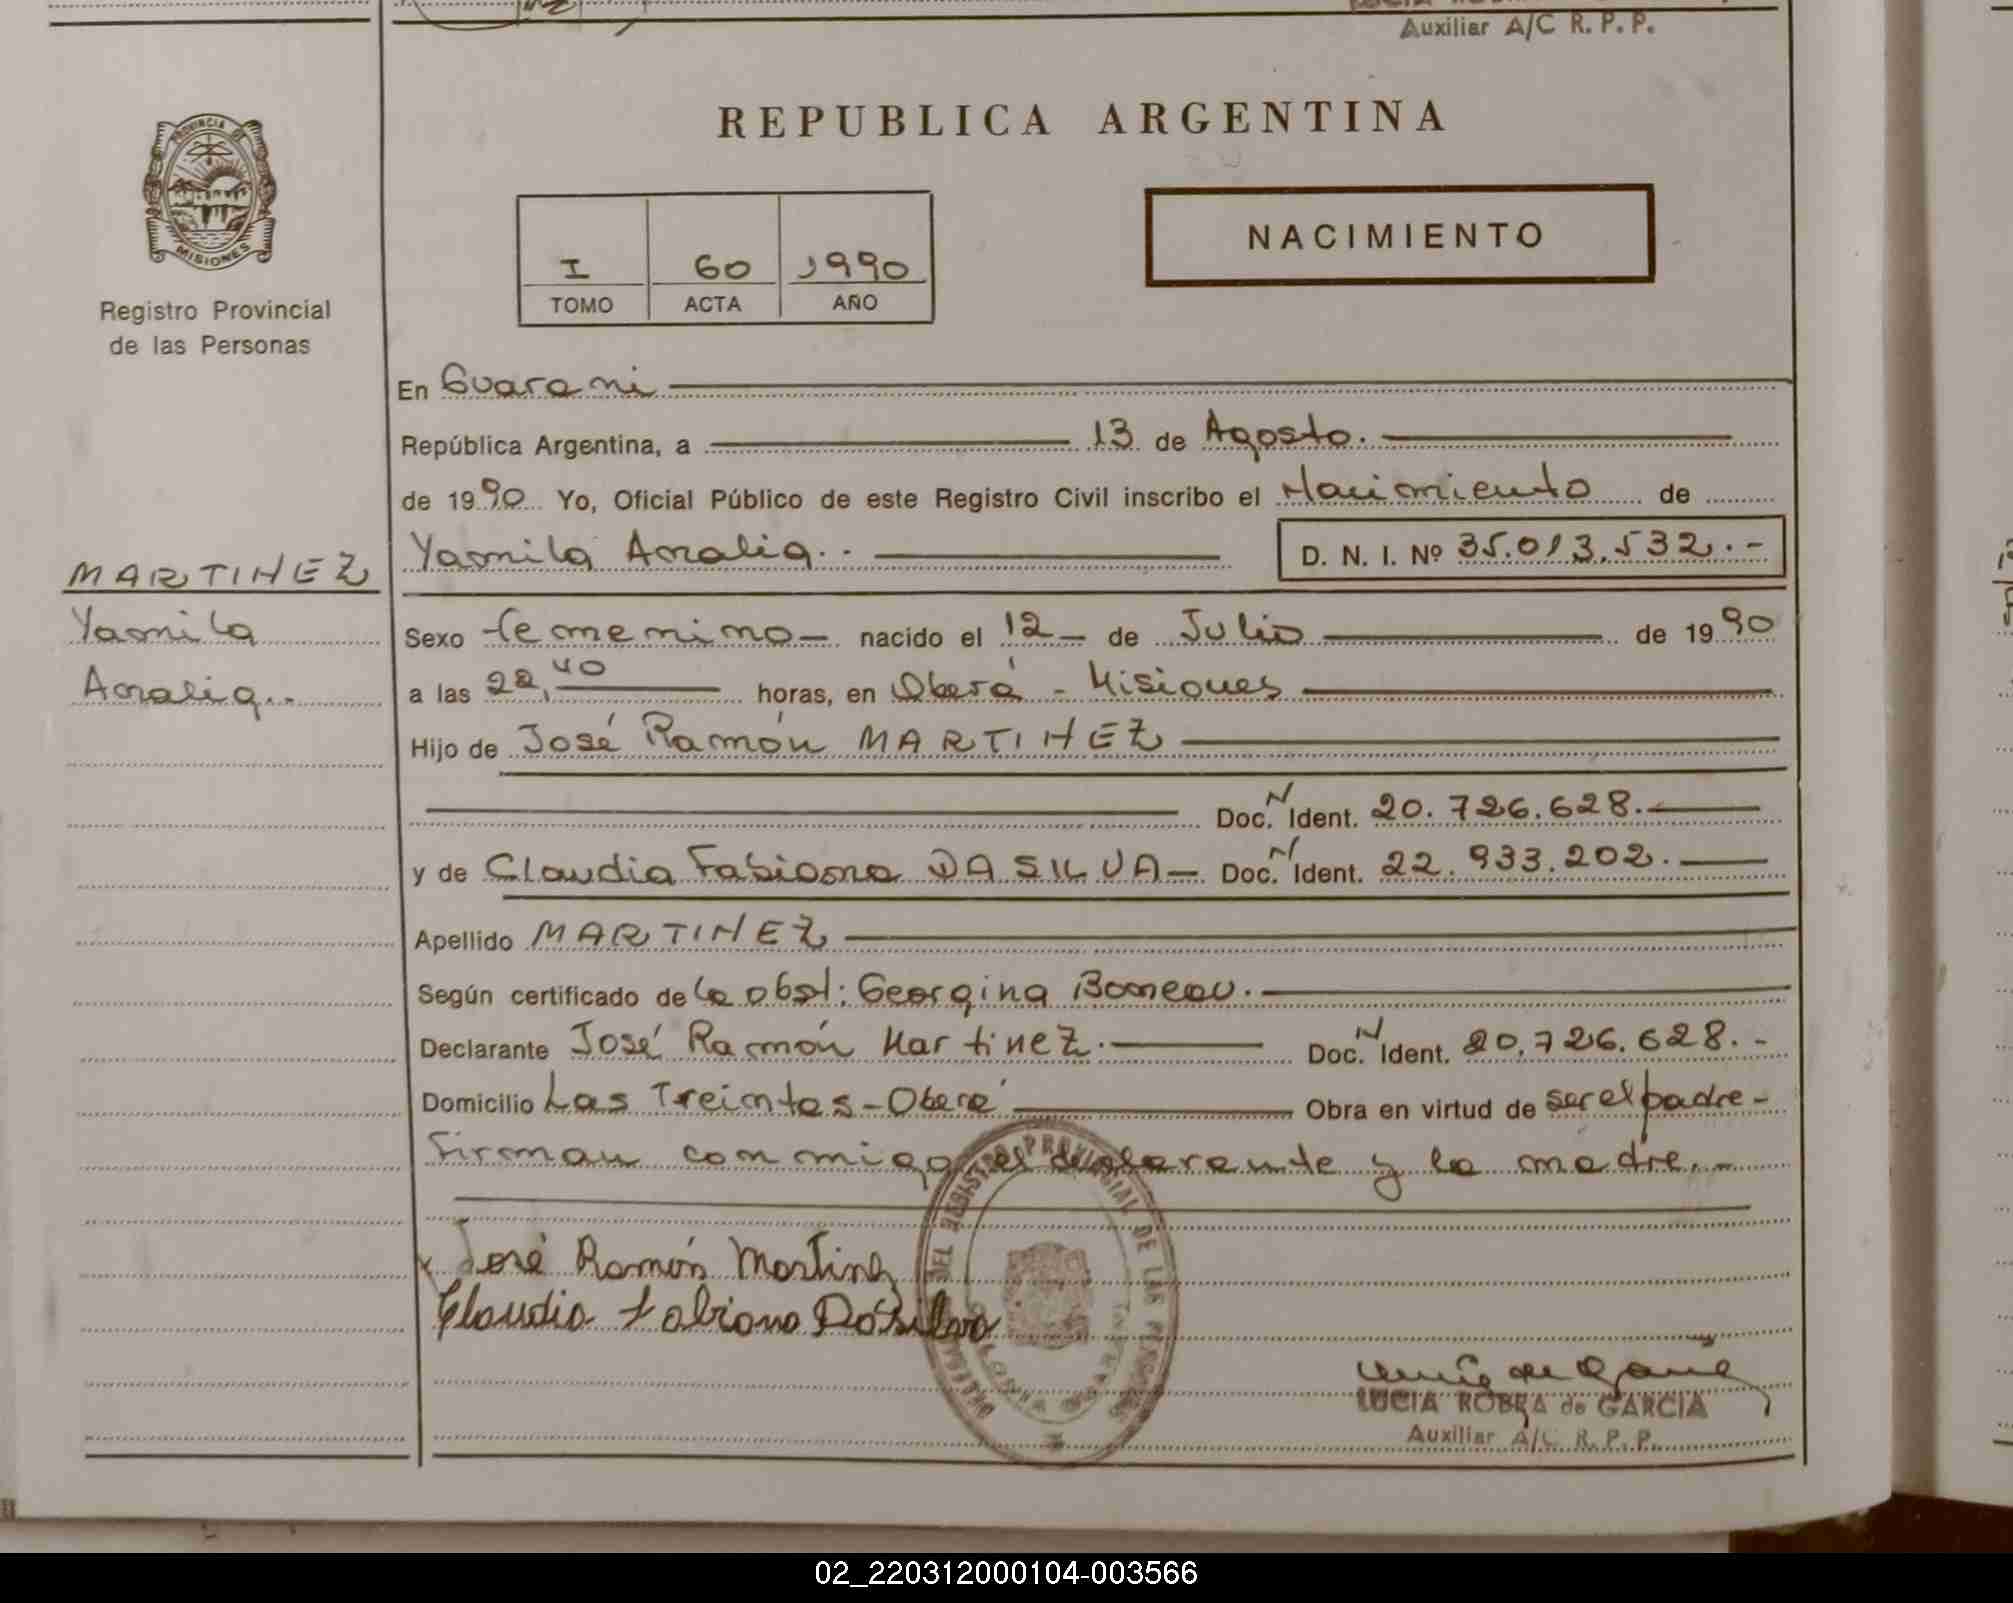 Auxiliar A/C R. P. P.
PROVINCIA DE
MISIONES
Registro Provincial
de las Personas
REPUBLICA ARGENTINA
NACIMIENTO
I 60 1990
TOMO ACTA AÑO
En Guarani
República Argentina, a 13 de Agosto.
de 1990 Yo, Oficial Público de este Registro Civil inscribo el Nacimiento de
Yamila Analia.. D. N. I. Nº 35.013.532.-
MARTINEZ
Yamila
Analia..
Sexo femenino nacido el 12 de Julio de 1990
a las 22,40 horas, en Oberá - Misiones
Hijo de José Ramón MARTINEZ
Doc. N Ident. 20.726.628.
y de Claudia Fabiana DA SILVA Doc. N Ident. 22.933.202.
Apellido MARTINEZ
Según certificado de la obst: Georgina
Declarante José Ramón Martinez. Doc. N Ident. 20.726.628.-
Domicilio Las Treintas - Oberá Obra en virtud de ser el padre -
Firman conmigo el declarante y la madre.-
José Ramón Martinez
Claudia Fabiana Da Silva
DEL REGISTRO PROVINCIAL DE LAS PERSONAS
LUCIA ROBRA de GARCIA
Auxiliar A/C R. P. P.
02_220312000104-003566